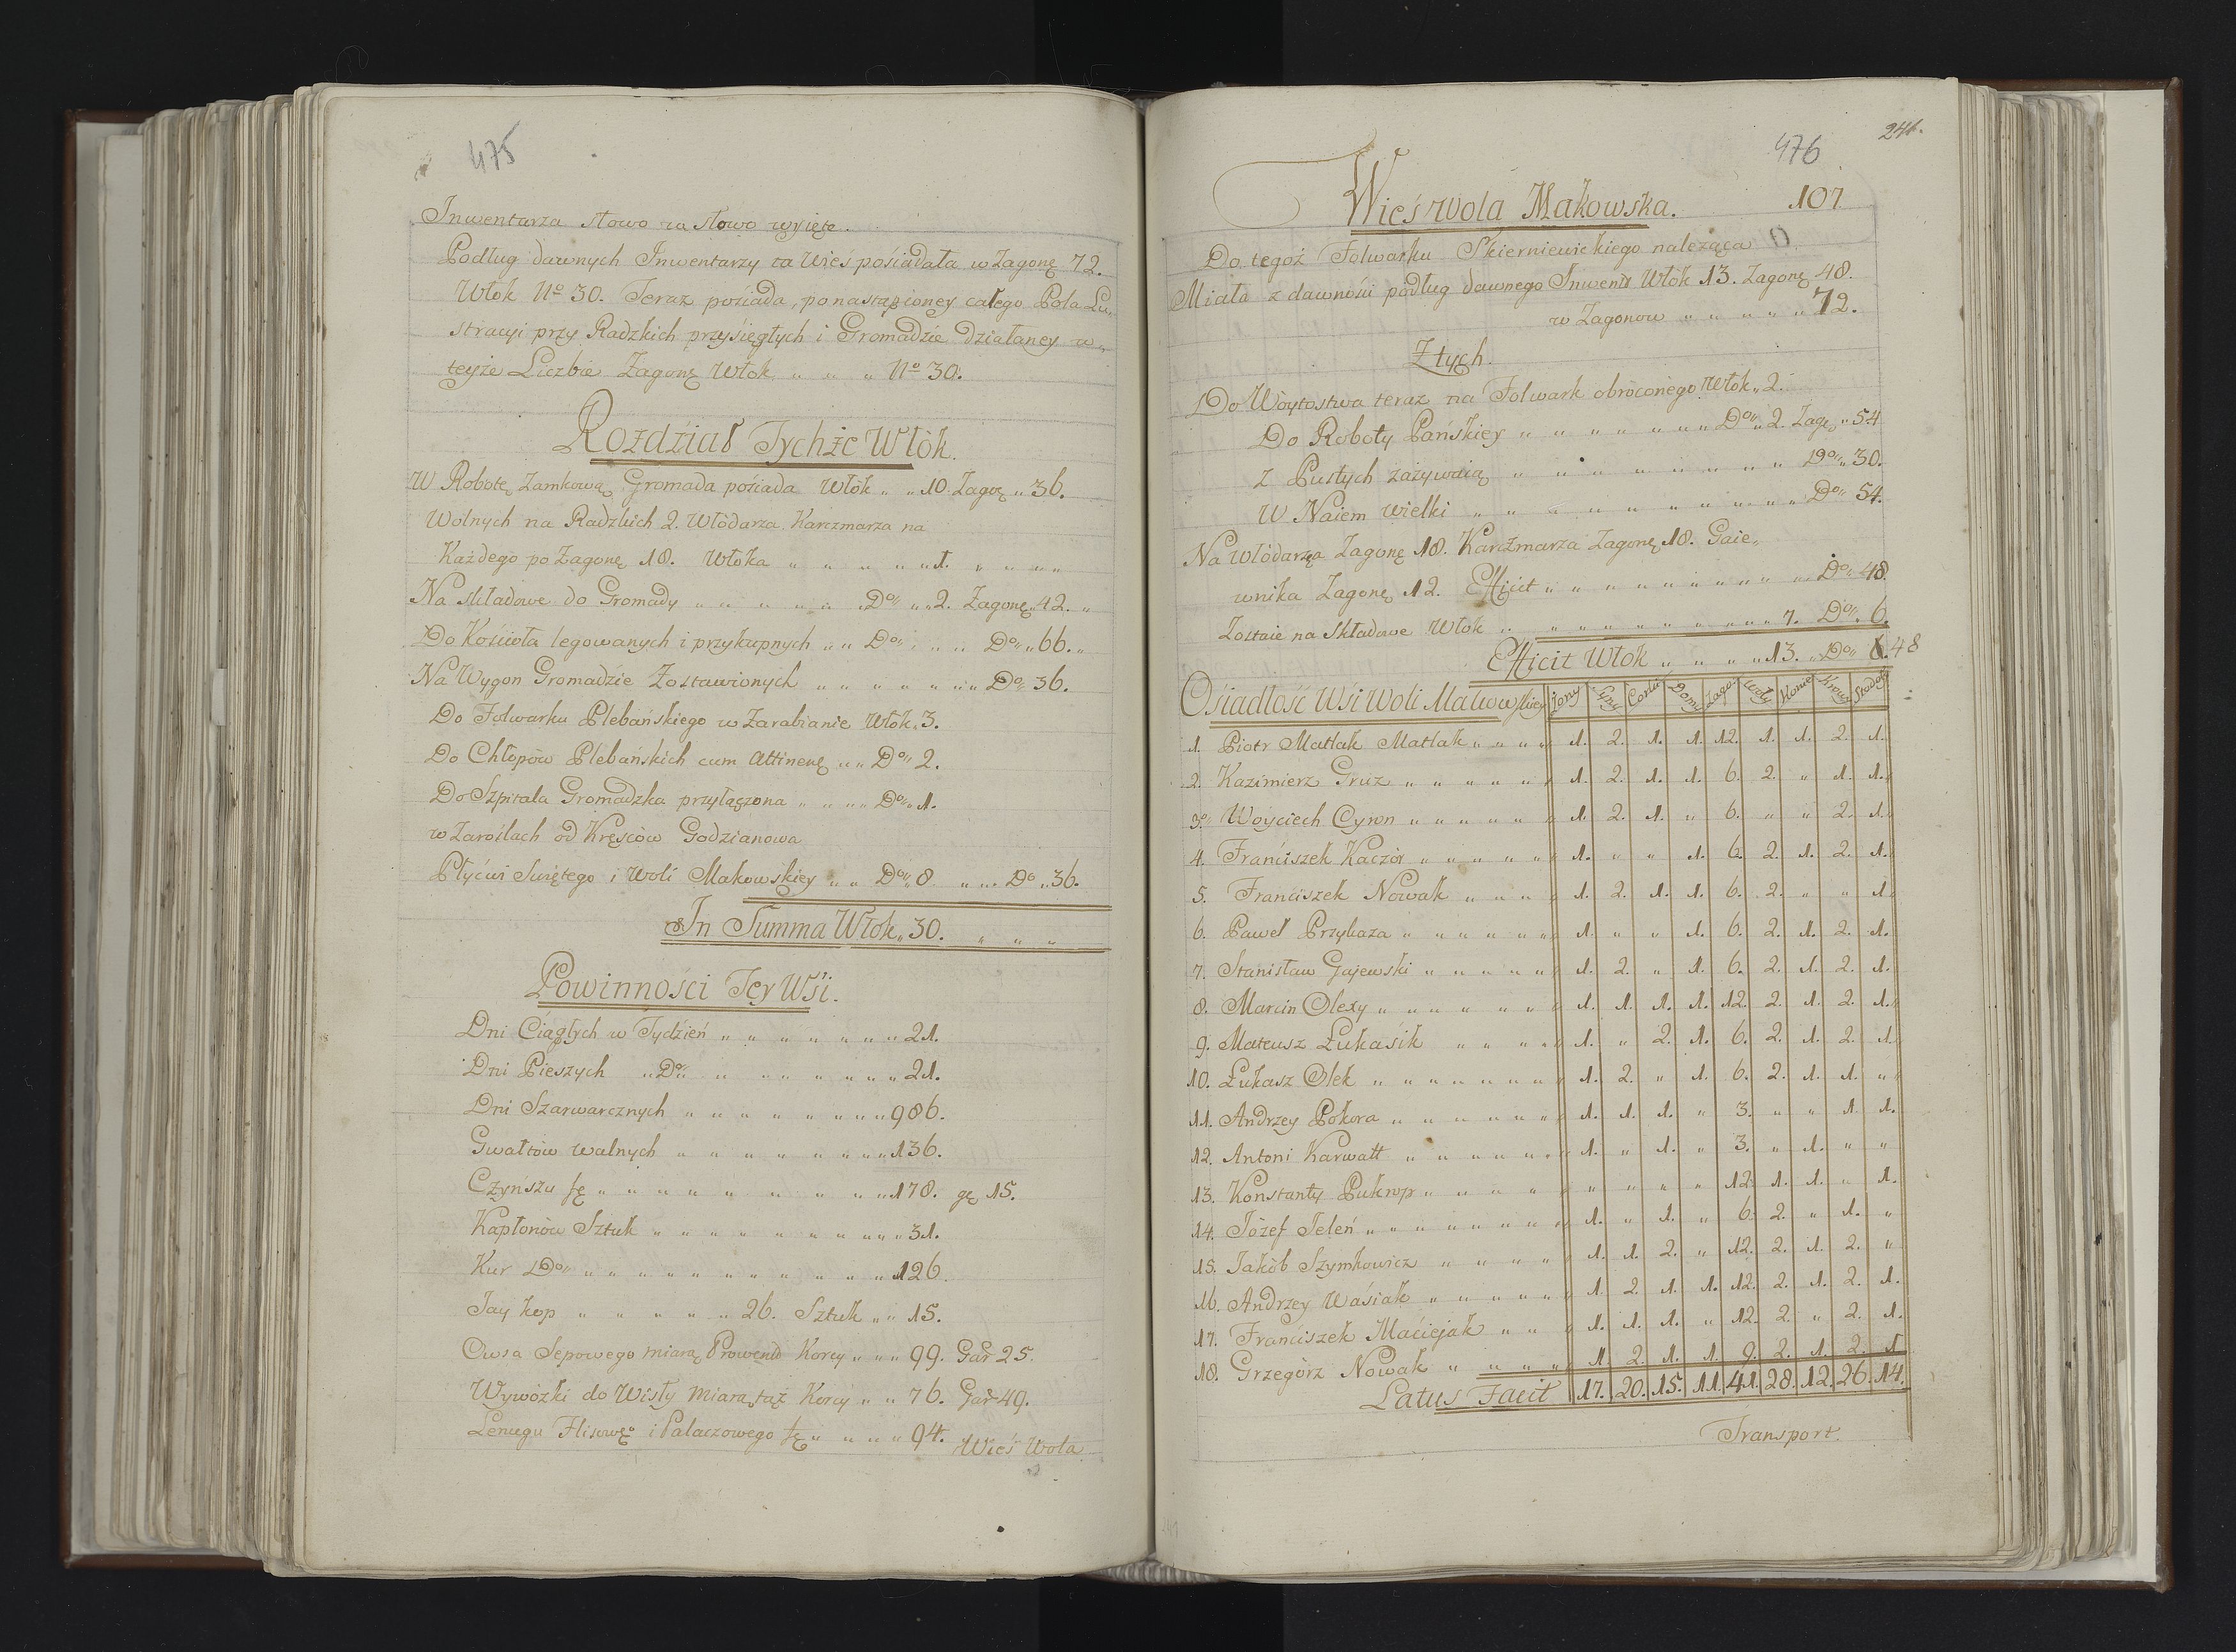 475
Inwentarza słowo za słowo wyięte.
Podług dawnych Inwentarzy ta wieś posiadała w Zagonę 72.
Włok No 30. Teraz posiada, po nastąpioney całego Pola Lu„
stracyi przy Radzkich przysięgłych i Gromadzie działaney w„
teyże Liczbie Zagonę Włok „ „ „ No 30.
Rozdział Tychże Włók.
W Robotę Zamkową Gromada posiada Włók „ „ 10 Zagoę „ 36.
Wolnych na Radzkich 2. Włodarza, Karczmarza na
Każdego po Zagonę 18. Włoka „ „ „ „ „ 1. „ „ „ „
Na składowe do Gromady „ „ „ „ „ Do „ „ 2. Zagonę „ 42. „
Do Kościoła legowanych i przykupnych „ „ Do „ „ „ Do „ „ 66. „
Na Wygon Gromadzie Zostawionych „ „ „ „ „ „ „ Do 36.
Do Folwarku Plebańskiego w Zarabianie Włok „ 3.
Do Chłopów Plebańskich cum Attinenę „ „ Do 2.
Do Szpitala Gromadzka przyłączona „ „ „ „ Do „ 1.
w Zaroślach od Kręsców Godzianowa
Płyćwi Swiętego i Woli Makowskiey „ „ Do „ 8 „ „ „ Do „ 36.
In Summa Włok „ 30. „ „ „
Powinnosci Tey Wśi.
Dni Ciągłych w Tydzień „ „ „ „ „ „ „ „ 21.
Dni Pieszych „ Do „ „ „ „ „ „ „ 21.
Dni Szarwarcznych „ „ „ „ „ „ „ „ 986.
Gwałtów walnych „ „ „ „ „ „ „ „ 136.
Czynszu fę „ „ „ „ „ „ „ „ „ „ 178. gę 15.
Kapłonów Sztuk „ „ „ „ „ „ „ „ „ 31.
Kur Do „ „ „ „ „ „ „ „ „ „ „ 126.
Jay kop „ „ „ „ „ „ 26. Sztuk „ „ 15.
Owsa Sepowego miarą Prowend Korcy „ „ „ 99. Gar 25.
Wywózki do Wisły Miarą taż Korcy „ „ 76. Gar 49.
i Palaczowego fę „ „ „ „ 94.
Wieś Wola
241.
476
107
Wieś Wola Makowska.
Do tegoż Folwarku Skierniewickiego należąca
Miała z dawności podług dawnego Inwent Włók 13. Zagonę 48.
w Zagonow „ „ „ „ „ 72.
Z tych.
Do Woytostwa teraz na Folwark obróconego Włok „ 2.
Do Roboty Pańskiey „ „ „ „ „ „ „ Do „ 2. Zagę „ 54
Z Pustych zażywaią „ „ „ „ „ „ „ „ „ „ Do „ 30.
W Naiem wielki „ „ „ „ „ „ „ „ „ „ „ Do „ 54.
Na Włódarza Zagonę 18. Karczmarza Zagonę 18. Gaie„
wnika Zagonę 12. Efficit „ „ „ „ „ „ „ „ „ Do „ 48.
Zostaie na Składowe Włok „ „ „ „ „ „ „ „ „ 7. Do „ 6.
Efficit Włok „ „ „ „ 13. „ Do „ 48
Osiadłość Wśi Woli Makowskiey Żony Syny Corki Domy Zago: Woły Konie Krowy Stodoły
1. Piotr Matlak Matlak „ „ „ „ 1. 2. 1. 1. 12. 1. 1. 2. 1.
2. Kazimierz Gruz „ „ „ „ „ „ 1. 2. 1. 1. 6. 2. „ 1. 1.
3. Woyciech Cyron „ „ „ „ „ „ 1. 2. 1. „ 6. „ „ 2. 1.
4. Franciszek Kaczór „ „ „ „ „ „ 1. „ „ 1. 6. 2. 1. 2. 1.
5. Franciszek Nowak „ „ „ „ 1. 2. 1. 1. 6. 2. „ „ 1.
6. Paweł Przybaza „ „ „ „ „ „ 1. „ „ 1. 6. 2. 1. 2. 1.
7. Stanisław Gajewski „ „ „ „ „ 1. 2. „ 1. 6. 2. 1. 2. 1.
8. Marcin Olexy „ „ „ „ „ „ „ 1. 1. 1. 1. 12. 2. 1. 2. 1.
9. Mateusz Łukasik „ „ „ „ „ 1. „ 2. 1. 6. 2. 1. 2. 1.
10. Łukasz Olek „ „ „ „ „ „ „ 1. 2. „ 1. 6. 2. 1. 1. „
11. Andrzey Pokora „ „ „ „ „ „ 1. 1. 1. „ 3. „ „ 1. 1.
12. Antoni Karwatt „ „ „ „ „ „ 1. „ 1. „ 3. „ 1. „ „
13. Konstanty „ „ „ „ „ „ „ „ „ 12. 1. 1. „ 1.
14. Józef Jeleń „ „ „ „ „ „ „ „ 1. „ 1. „ 6. 2. „ 1. „
15. Jakób Szymkowicz „ „ „ „ „ 1. 1. 2. „ 12. 2. 1. 2. „
16. Andrzey Wasiak „ „ „ „ „ „ 1. 2. 1. 1. 12. 2. 1. 2. 1.
17. Franciszek Maciejak „ „ „ 1. 1. 1. „ 12. 2. „ 2. 1.
18. Grzegórz Nowak „ „ „ „ „ 1. 2. 1. 1. 9. 2. 1. 2. 1
Latus Facit 17. 20. 15. 11. 41. 28. 12. 26. 14.
Transport.